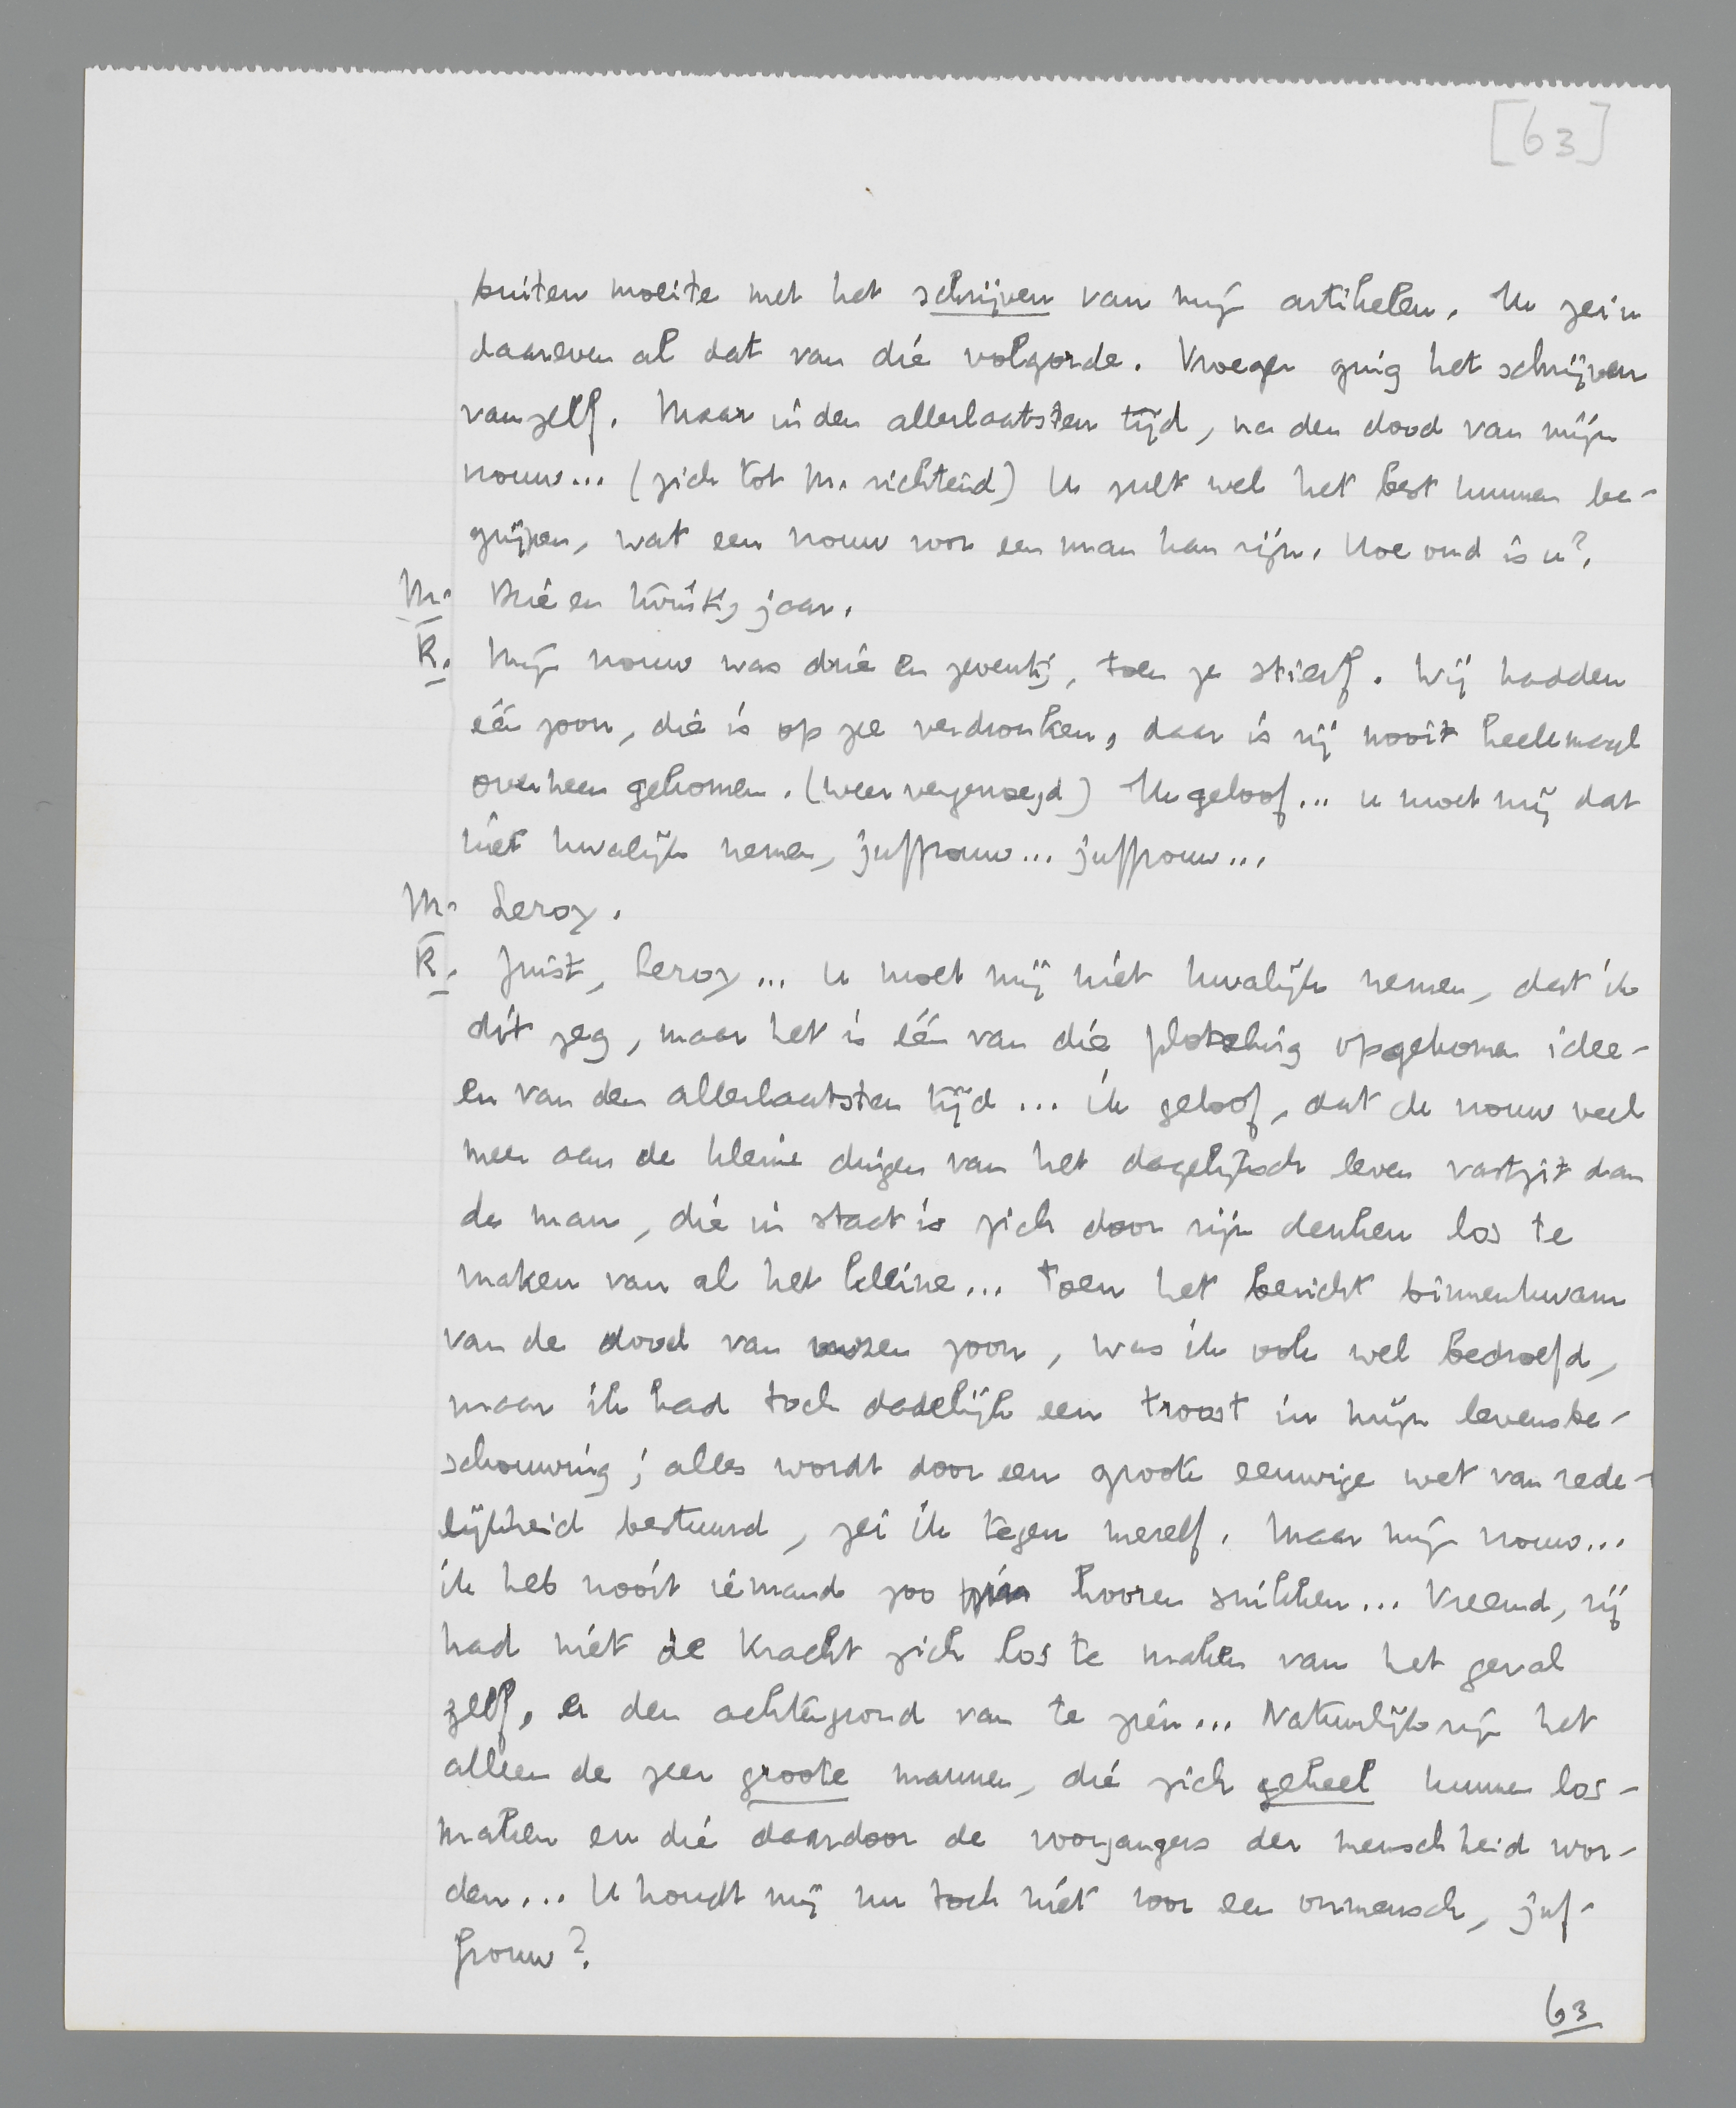 [63]
buiten moeite met het schrijven van mijn artikelen. Ik zei u
daareven al dat van die volgorde. Vroeger ging het schrijven
vanzelf. Maar in den allerlaatsten tijd, na den dood van mijn
vrouw... (zich tot M. richtend) U zult wel het best kunnen be-
grijpen, wat een vrouw voor een man kan zijn. Hoe oud is u?
M. Drie en twintig jaar.
R. Mijn vrouw was drie en zeventig, toen ze stierf. Wij hadden
één zoon, die is op zee verdronken, daar is zij nooit heelemaal
overheen gekomen. (weer vergenoegd) Ik geloof... u moet mij dat
niet kwalijk nemen, juffrouw... juffrouw...
M. Leroy.
R. Juist, Leroy... u moet mij niet kwalijk nemen, dat ik
dit zeg, maar het is één van die plotseling opgekomen idee-
en van den allerlaatsten tijd... ik geloof, dat de vrouw veel
meer aan de kleine dingen van het dagelijksch leven vastzit dan
de man, die in staat is zich door zijn denken los te
maken van al het kleine... Toen het bericht binnenkwam
van de dood van onzen zoon, was ik ook wel bedroefd,
maar ik had toch dadelijk een troost in mijn levensbe-
schouwing; alles wordt door een groote eeuwige wet van rede-
lijkheid bestuurd, zei ik tegen mezelf. Maar mijn vrouw...
ik heb nooit iemand zoo hooren snikken... Vreemd, zij
had niet de kracht zich los te maken van het geval
zelf, er den achtergrond van te zien... Natuurlijk zijn het
alleen de zeer groote mannen, die zich geheel kunnen los-
maken en die daardoor de voorgangers der menschheid wor-
den... U houdt mij nu toch niet voor een onmensch, juf-
frouw?
63